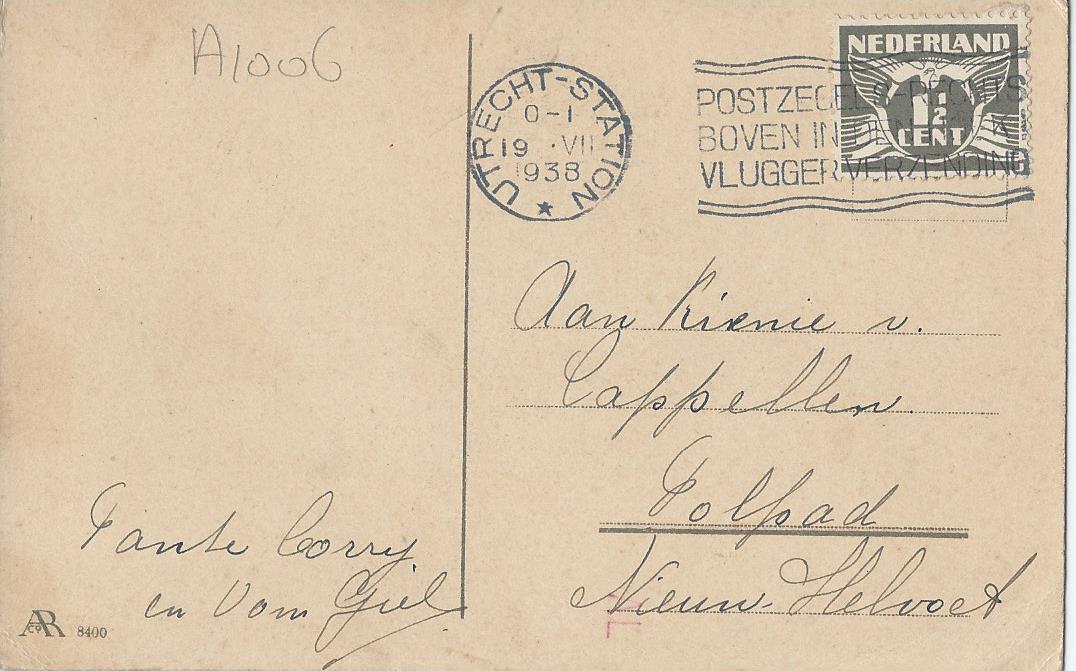 A1006
UTRECHT-STATION
0-1
19 · VII
1938
POSTZEGELS-RECHTS
BOVEN IN DEN HOEK
VLUGGER VERZENDING
NEDERLAND
1 1/2
CENT
Aan Rienie v.
Cappellen.
Tolpad
Nieuw-Helvoet
Tante Corry
en Oom Giel
ARCo 8400